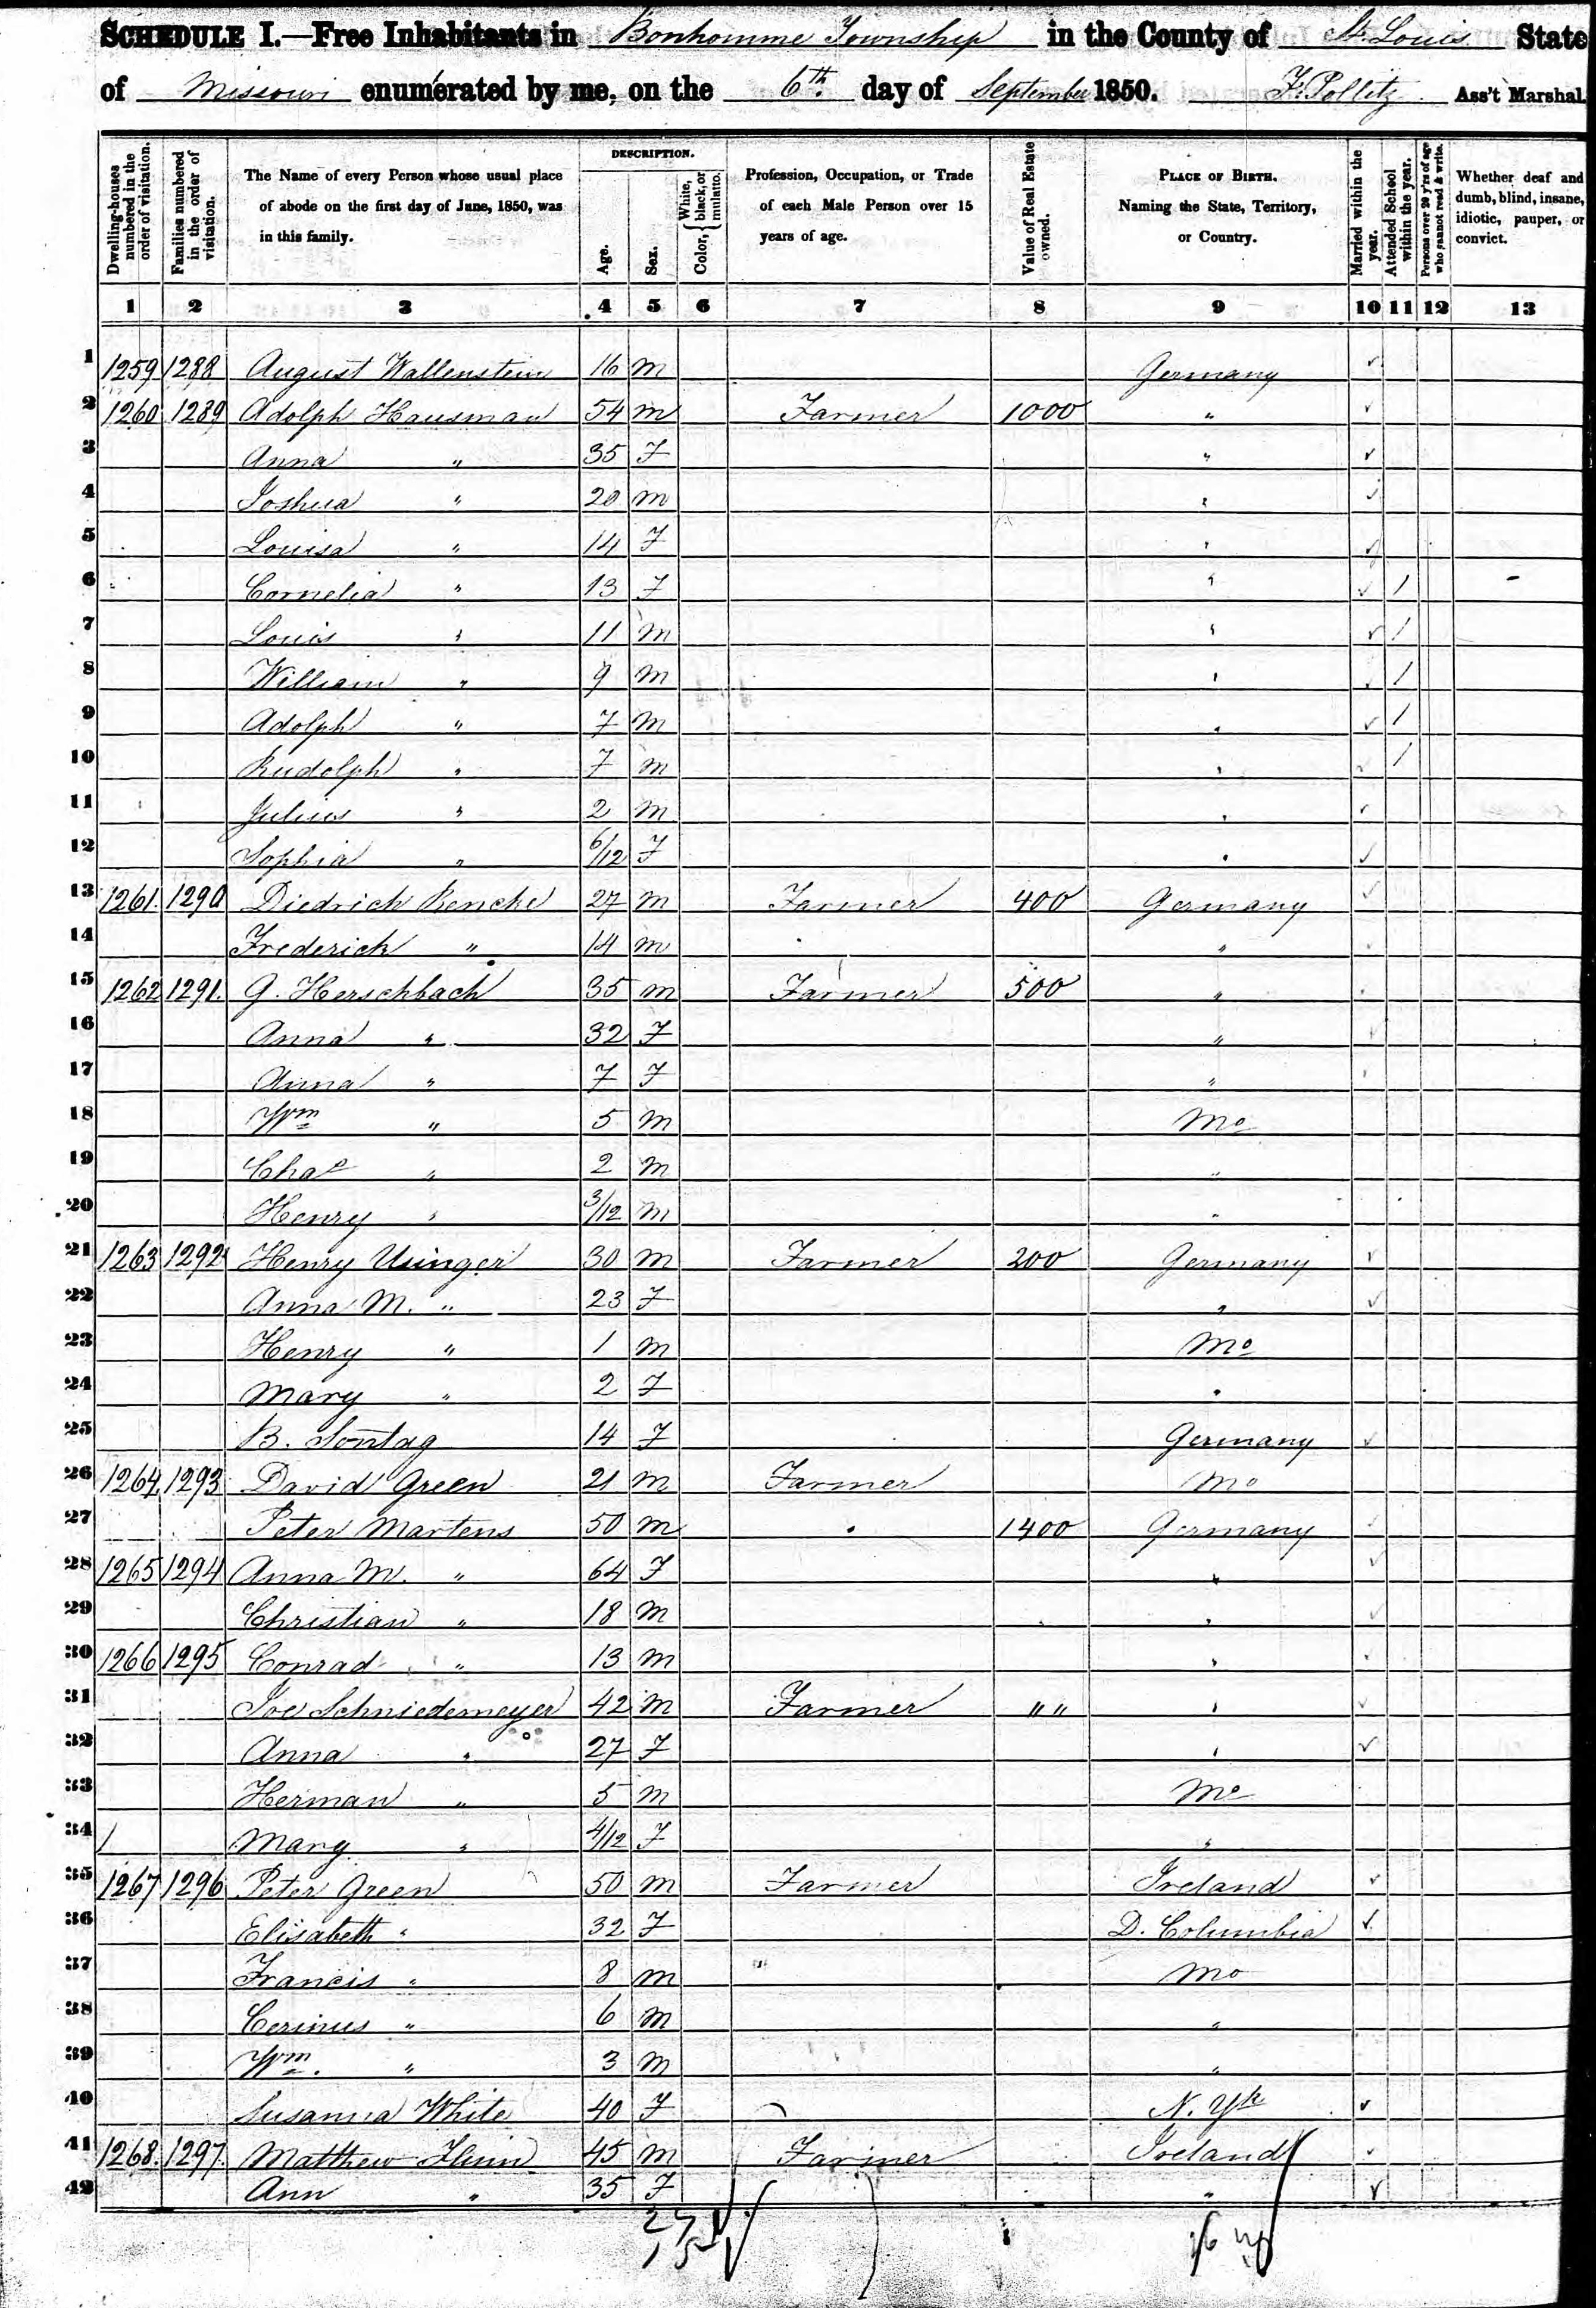 SCHEDULE I.—Free Inhabitants in Bonhomme Township in the County of St. Louis State
of Missouri enumerated by me, on the 6th. day of September 1850. F. Pollitz Ass't Marshal.
Dwelling-houses numbered in the order of visitation.
Families numbered in the order of visitation.
The Name of every Person whose usual place of abode on the first day of June, 1850, was in this family.
DESCRIPTION.
Age.
Sex.
Color, { White, black, or mulatto.
Profession, Occupation, or Trade of each Male Person over 15 years of age.
Value of Real Estate owned.
PLACE OF BIRTH. Naming the State, Territory, or Country.
Married within the year.
Attended School within the year.
Persons over 20 y'rs of age who cannot read & write.
Whether deaf and dumb, blind, insane, idiotic, pauper, or convict.
1 2 3 4 5 6 7 8 9 10 11 12 13
1 1259 1288 August Wallenstein 16 m Germany ✓
2 1260 1289 Adolph Hausman 54 m Farmer 1000 " ✓
3 Anna " 35 F " ✓
4 Joshua " 20 m " ✓
5 Louisa " 14 F " ✓
6 Cornelia " 13 F " ✓ 1
7 Louis " 11 m " ✓ 1
8 William " 9 m " ✓ 1
9 Adolph " 7 m " ✓ 1
10 Rudolph " 7 m " ✓ 1
11 Julius " 2 m " ✓
12 Sophia " 6/12 F " ✓
13 1261. 1290 Diedrich Renche 27 m Farmer 400 Germany ✓
14 Frederich " 14 m " ✓
15 1262 1291. G. Herschbach 35 m Farmer 500 "
16 Anna " 32 F " ✓
17 Anna " 7 F "
18 Wm " 5 m Mo
19 Chas " 2 m "
20 Henry " 3/12 m "
21 1263 1292 Henry Usinger 30 m Farmer 200 Germany ✓
22 Anna M. " 23 F " ✓
23 Henry " 1 m Mo
24 Mary " 2 F "
25 B. Sontag 14 F Germany ✓
26 1264 1293 David Green 21 m Farmer Mo
27 Peter Martens 50 m " 1400 Germany ✓
28 1265 1294 Anna M. " 64 F " ✓
29 Christian " 18 m " ✓
30 1266 1295 Conrad " 13 m "
31 Joe Schniedemeyer 42 m Farmer " " " ✓
32 Anna " 27 F " ✓
33 Herman " 5 m Mo
34 Mary " 4/12 F "
35 1267 1296 Peter Green 50 m Farmer Ireland ✓
36 Elisabeth " 32 F D. Columbia ✓
37 Francis " 8 m Mo
38 Cerinus " 6 m "
39 Wm. " 3 m "
40 Susanna White 40 F N. Yk ✓
41 1268. 1297. Matthew Flinn 45 m Farmer Ireland ✓
42 Ann " 35 F " ✓
27
15